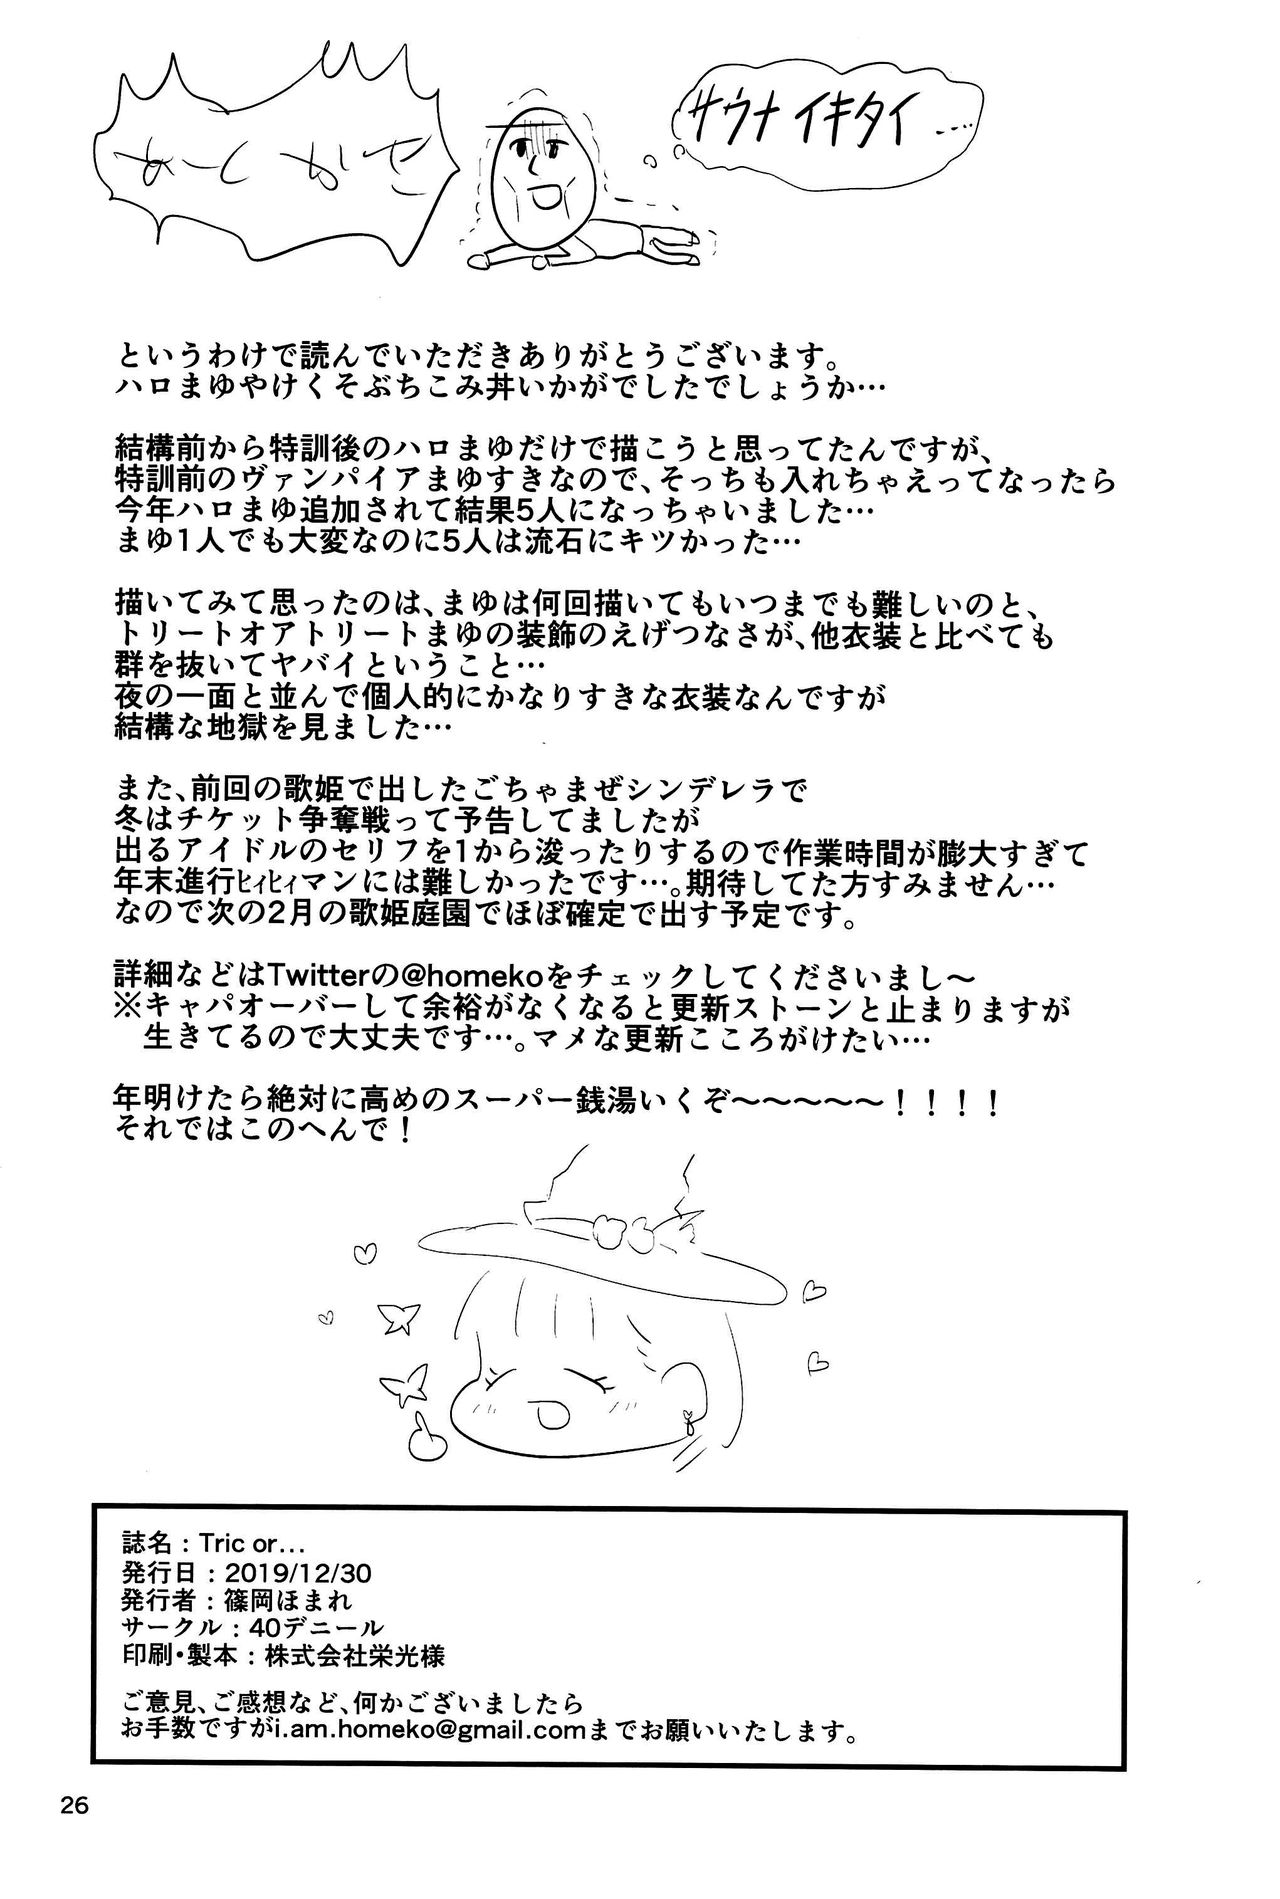 あとがき
サウナイキタイ……
というわけで読んでいただきありがとうございます。
ハロまゆやけくそぶちこみ丼いかがでしたでしょうか…
結構前から特訓後のハロまゆだけで描こうと思ってたんですが、
特訓前のヴァンパイアまゆすきなので、そっちも入れちゃえってなったら
今年ハロまゆ追加されて結果5人になっちゃいました…
まゆ1人でも大変なのに5人は流石にキツかった…
描いてみて思ったのは、まゆは何回描いてもいつまでも難しいのと、
トリートオアトリートまゆの装飾のえげつなさが、他衣装と比べても
群を抜いてヤバイということ…
夜の一面と並んで個人的にかなりすきな衣装なんですが
結構な地獄を見ました…
また、前回の歌姫で出したごちゃまぜシンデレラで
冬はチケット争奪戦って予告してましたが
出るアイドルのセリフを1から浚ったりするので作業時間が膨大すぎて
年末進行ﾋｨﾋｨマンには難しかったです…。期待してた方すみません…
なので次の2月の歌姫庭園でほぼ確定で出す予定です。
詳細などはTwitterの@homekoをチェックしてくださいまし〜
※キャパオーバーして余裕がなくなると更新ストーンと止まりますが
生きてるので大丈夫です…。マメな更新こころがけたい…
年明けたら絶対に高めのスーパー銭湯いくぞ〜〜〜〜〜！！！！
それではこのへんで！
誌名：Tric or…
発行日：2019/12/30
発行者：篠岡ほまれ
サークル：40デニール
印刷・製本：株式会社栄光様
ご意見、ご感想など、何かございましたら
お手数ですがi.am.homeko@gmail.comまでお願いいたします。
26